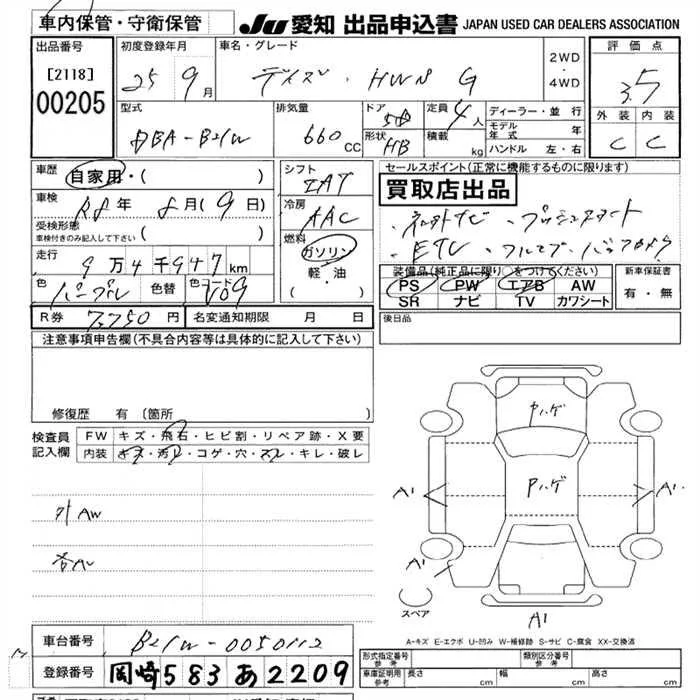 車内保管・守衛保管
JU 愛知 出品申込書 JAPAN USED CAR DEALERS ASSOCIATION
出品番号
[2118]
00205
初度登録年月
25 9月
車名・グレード
デイズ・HWS G
2WD
・
4WD
評価点
3.5
外装 内装
C C
型式
DBA-B21W
排気量
660 CC
ドア
5D
形状
HB
定員
4人
積載
kg
ディーラー・並行
モデル年式 年
ハンドル 左・右
車歴
自家用・( )
車検
R8年 8月(9日)
受検形態
車検付きのみ記入して下さい ( )
走行
9万4千947km
色
パープル
色替
色コード
V09
シフト
IAT
冷房
AAC
燃料
ガソリン
軽・油
( )
セールスポイント(正常に機能するものに限ります)
買取店出品
・社外ナビ ・プッシュスタート
・ETC ・フルセグ・バックカメラ
装備品(純正品に限り○をつけてください)
PS PW エアB AW
SR ナビ TV カワシート
新車保証書
有・無
R券 7,750円 名変通知期限 月 日
後日品
注意事項申告欄(不具合内容等は具体的に記入して下さい)
修復歴 有 〔箇所
検査員記入欄
FW キズ・飛石・ヒビ割・リペア跡・X要
内装 キズ・汚れ・コゲ・穴・スレ・キレ・破レ
外AW
ヤハゲ
Pハゲ
A1
A1
A1
A1
スペア
A-キズ E-エクボ U-凹み W-補修跡 S-サビ C-腐食 XX-交換済
車台番号 B21W-0050112
登録番号 岡崎583あ2209
形式指定番号
参考
類別区分番号
参考
車庫証明用
参考
長さ cm 幅 cm 高さ cm